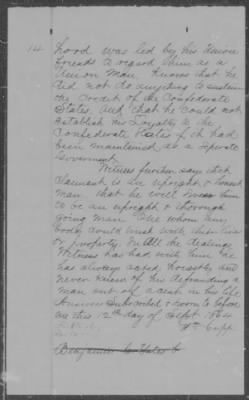 14
hood was led by his Union
friends to regard him as a
Union Man. Knows that he
did not do anything to sustain
the Credit of the Confederate
States. And that he could not
Establish his Loyalty to the
Confederate States if it had
been maintained as a seperate
Government.
Witness further says that
Claimant is an upright & honest
Man that he will
to be an upright & thorough
going man One whom any
body could trust with their lives
or property. In All the dealings
Witness has had with him he
has always acted honestly and
never knew of his defrauding a
man out of a cent in his life
Answers Subscribed & sworn to before
me this 12th day of Sept
Cupp
Benjamin